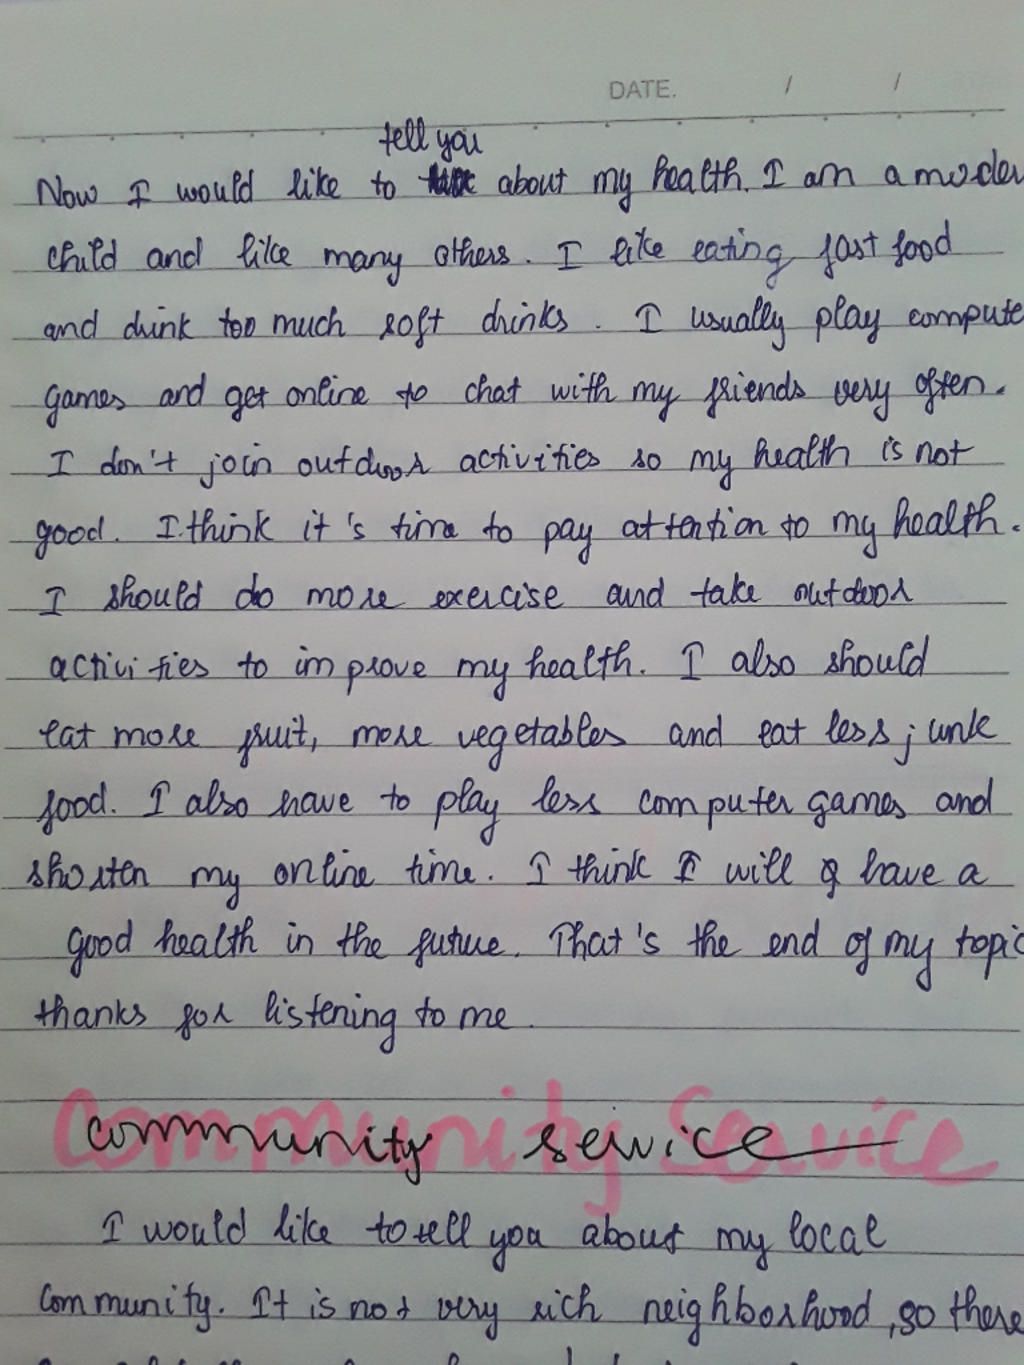 DATE. / /
tell you
Now I would like to about my health. I am a moder
child and like many others. I like eating fast food
and drink too much soft drinks. I usually play compute
games and get online to chat with my friends very often.
I don't join outdoor activities so my health is not
good. I think it's time to pay attention to my health.
I should do more exercise and take outdoor
activities to improve my health. I also should
eat more fruit, more vegetables and eat less junk
food. I also have to play less computer games and
shorten my online time. I think I will have a
good health in the future. That's the end of my topic
thanks for listening to me.
Community Service
community service
I would like to tell you about my local
community. It is not very rich neighborhood, so there